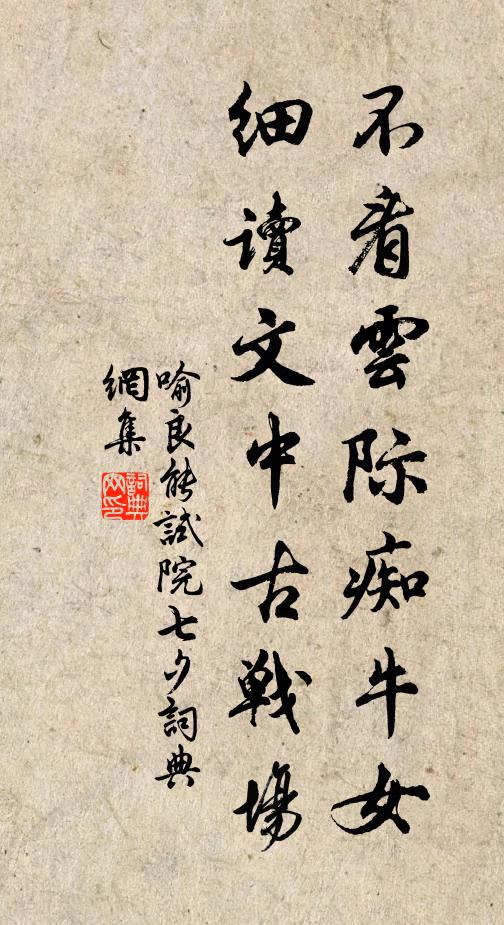 不看雲际痴牛女
细读文中古戦場
喻良能試院七夕詞典
網集
詞典網印